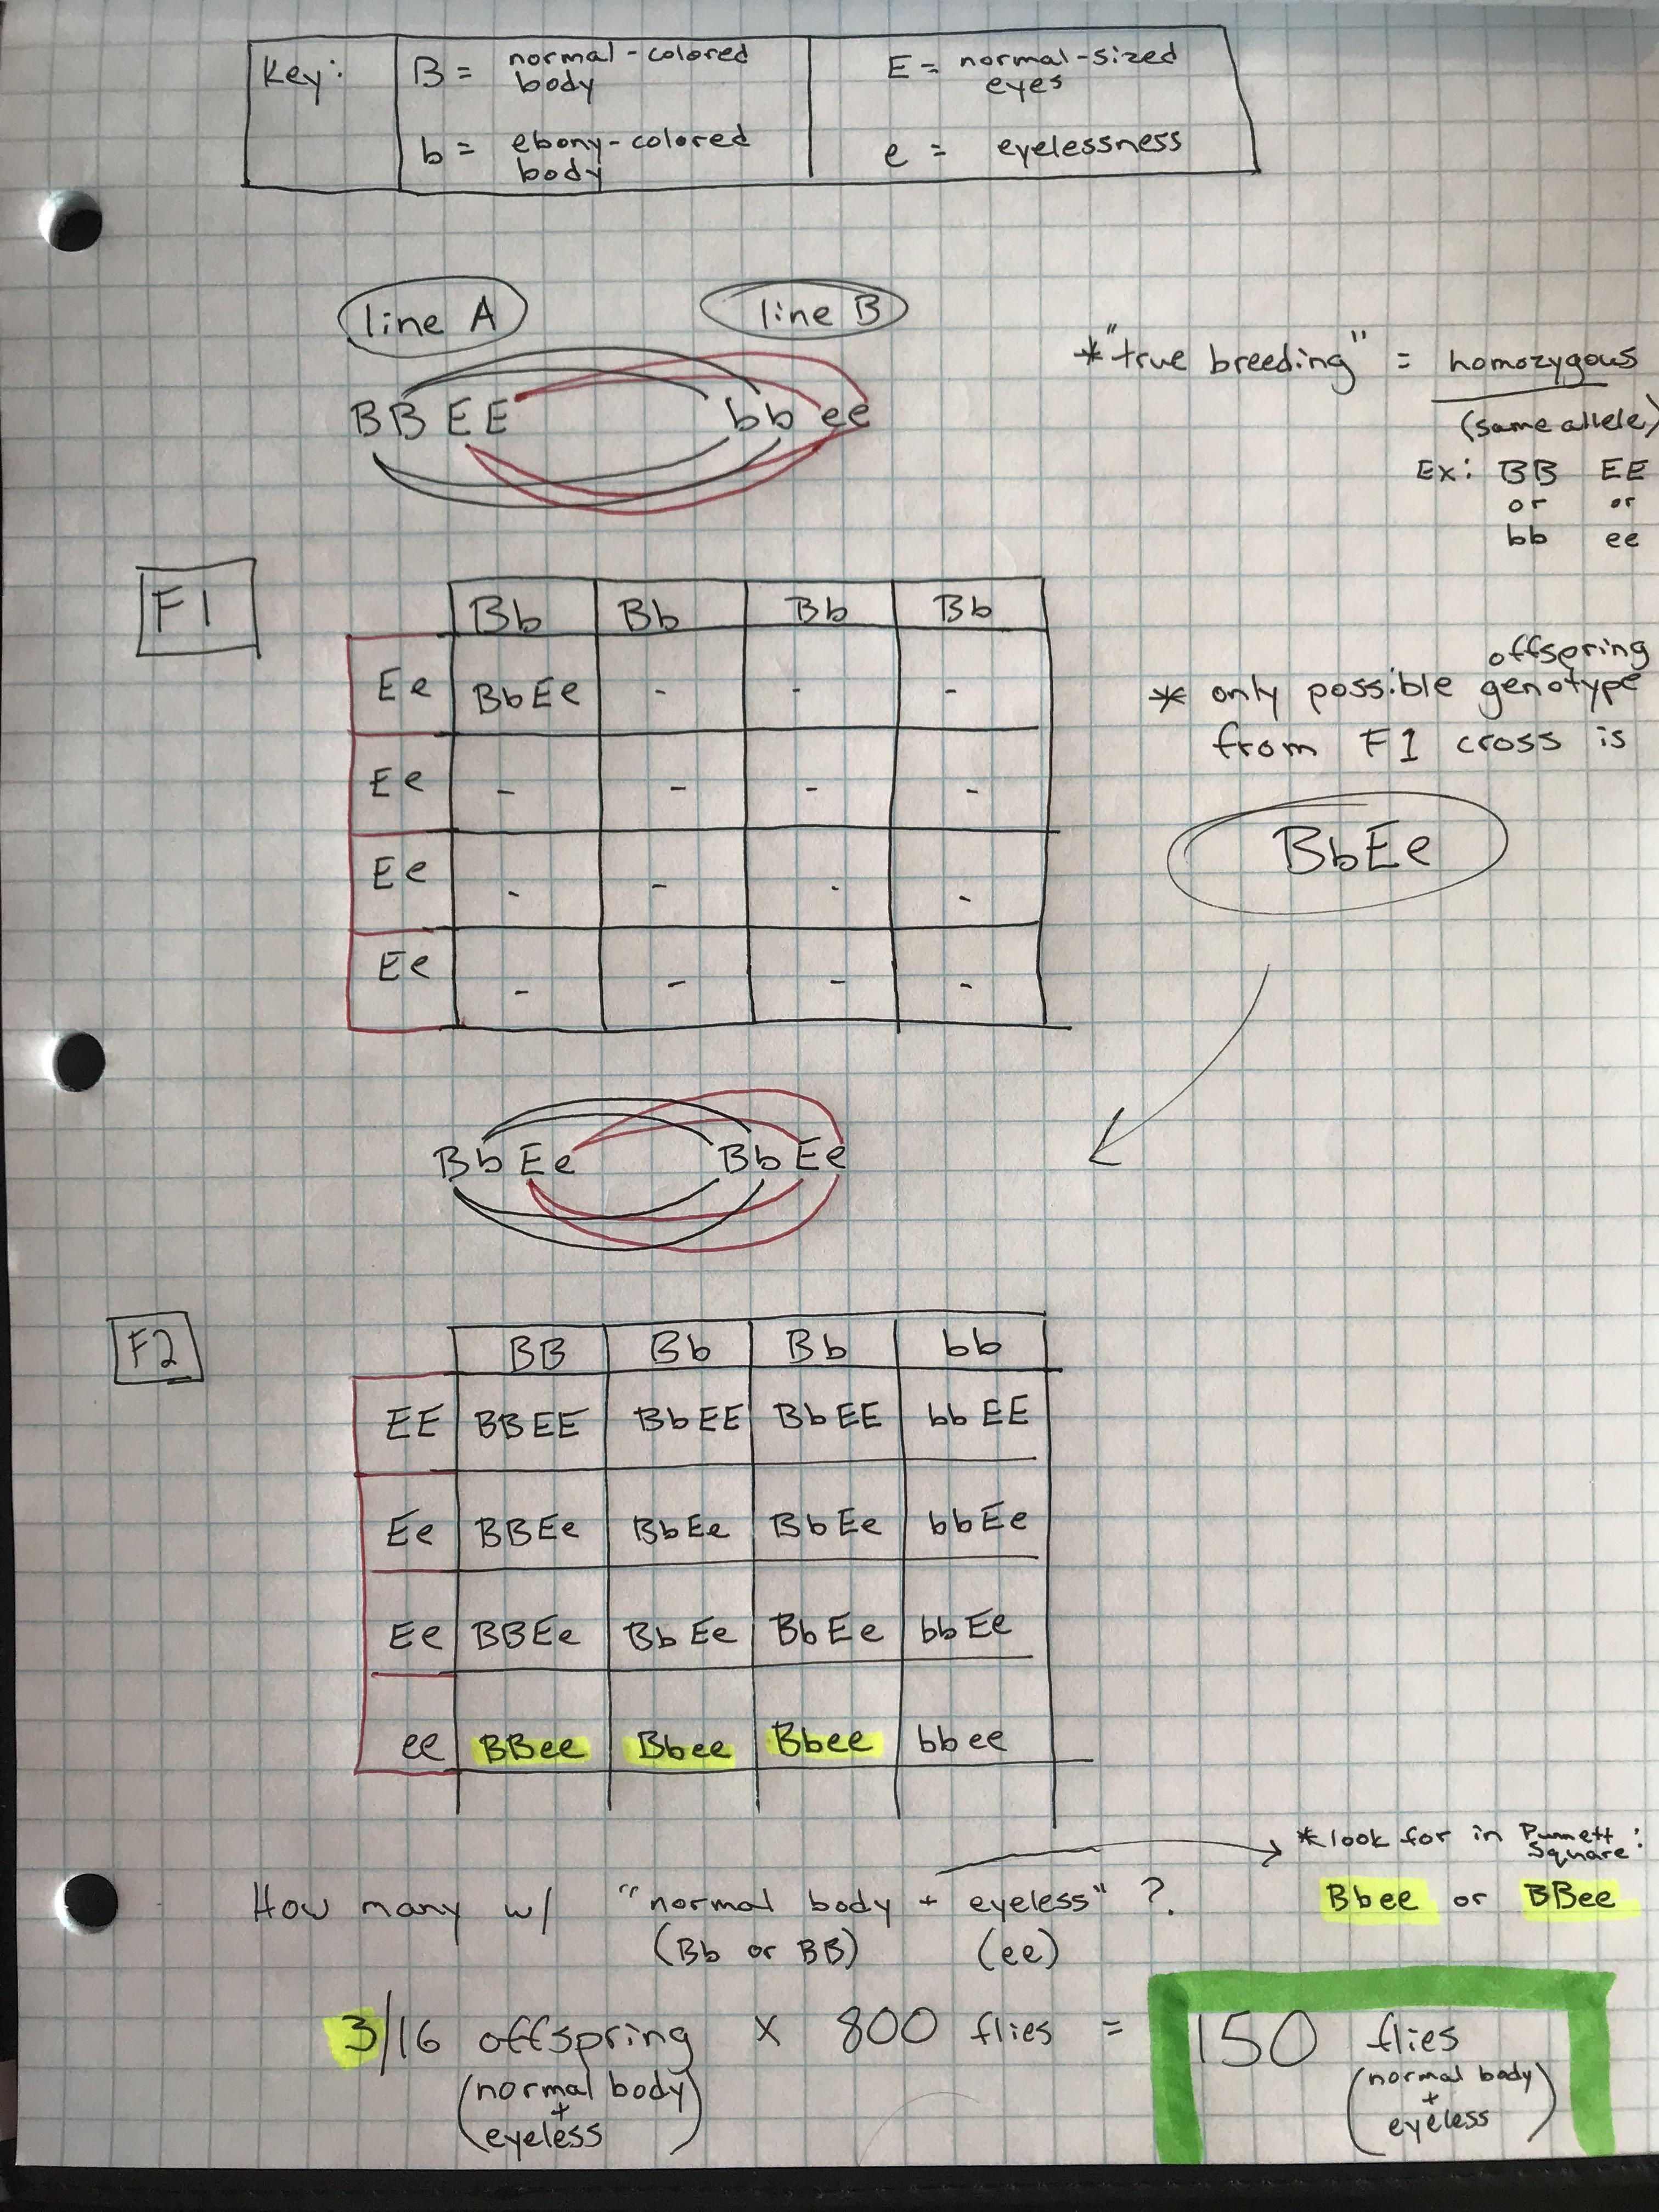 Key: B = normal-colored body E = normal-sized eyes
b = ebony-colored body e = eyelessness
line A line B
BBEE bbee
*"true breeding" = homozygous
(same allele)
Ex: BB EE
or or
bb ee
F1
Bb Bb Bb Bb
Ee BbEe - - -
Ee - - - -
Ee - - - -
Ee - - - -
* only possible offspring genotype
from F1 cross is
BbEe
BbEe BbEe
F2
BB Bb Bb bb
EE BBEE BbEE BbEE bbEE
Ee BBEe BbEe BbEe bbEe
Ee BBEe BbEe BbEe bbEe
ee BBee Bbee Bbee bbee
*look for in Punnett Square:
Bbee or BBee
How many w/ "normal body + eyeless" ?
(Bb or BB) (ee)
3/16 offspring x 800 flies = 150 flies
(normal body + eyeless) (normal body + eyeless)